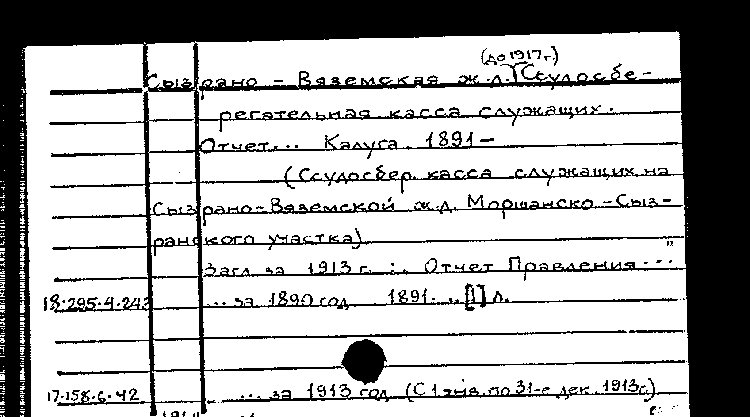 (до 1917 г)
Сызрано - Вяземская ж.д. Ссудосбе-
регательная касса служащих.
Отчет... Калуга. 1891 -
(Ссудосбер. касса служащих на
Сызрано-Вяземской ж.д. Моршанско-Сыз-
ранского участка).
Загл. за 1913 г.: Отчет Правления...
18.295.4.243 ... за 1890 год 1891. .. [1] л.
17.158.6.42 ... за 1913 год (С 1 янв. по 31-е дек. 1913 г.)